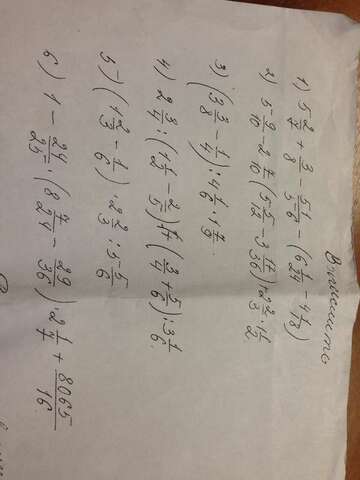 Вычислить
1) 5 2/7 + 3/8 - 5 1/56 - (6 1/24 - 4 1/18)
2) 5 9/10 - 2 7/10 (5 5/12 - 3 17/36) · 2 2/3 · 1 1/2
3) (3 3/8 - 1/4) : 4 1/6 · 1 7/9
4) 2 3/4 : (1 1/2 - 2/5) + (3/4 + 5/6) : 3 1/6
5) (1 2/3 - 1/6) · 2 2/3 : 5 5/6
6) 1 - 24/25 · (8 7/24 - 29/36) · 2 1/7 + 8065/16